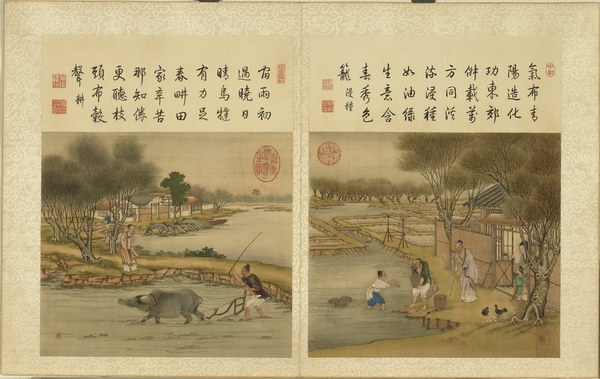 氣布青
陽造化
功東郊
俶載萬
方同溪
流浸種
如油綠
生意含
春秀色
籠 浸種
宿雨初
過曉日
晴烏犍
有力足
春畊田
家辛苦
那知倦
更聽枝
頭布穀
聲 耕